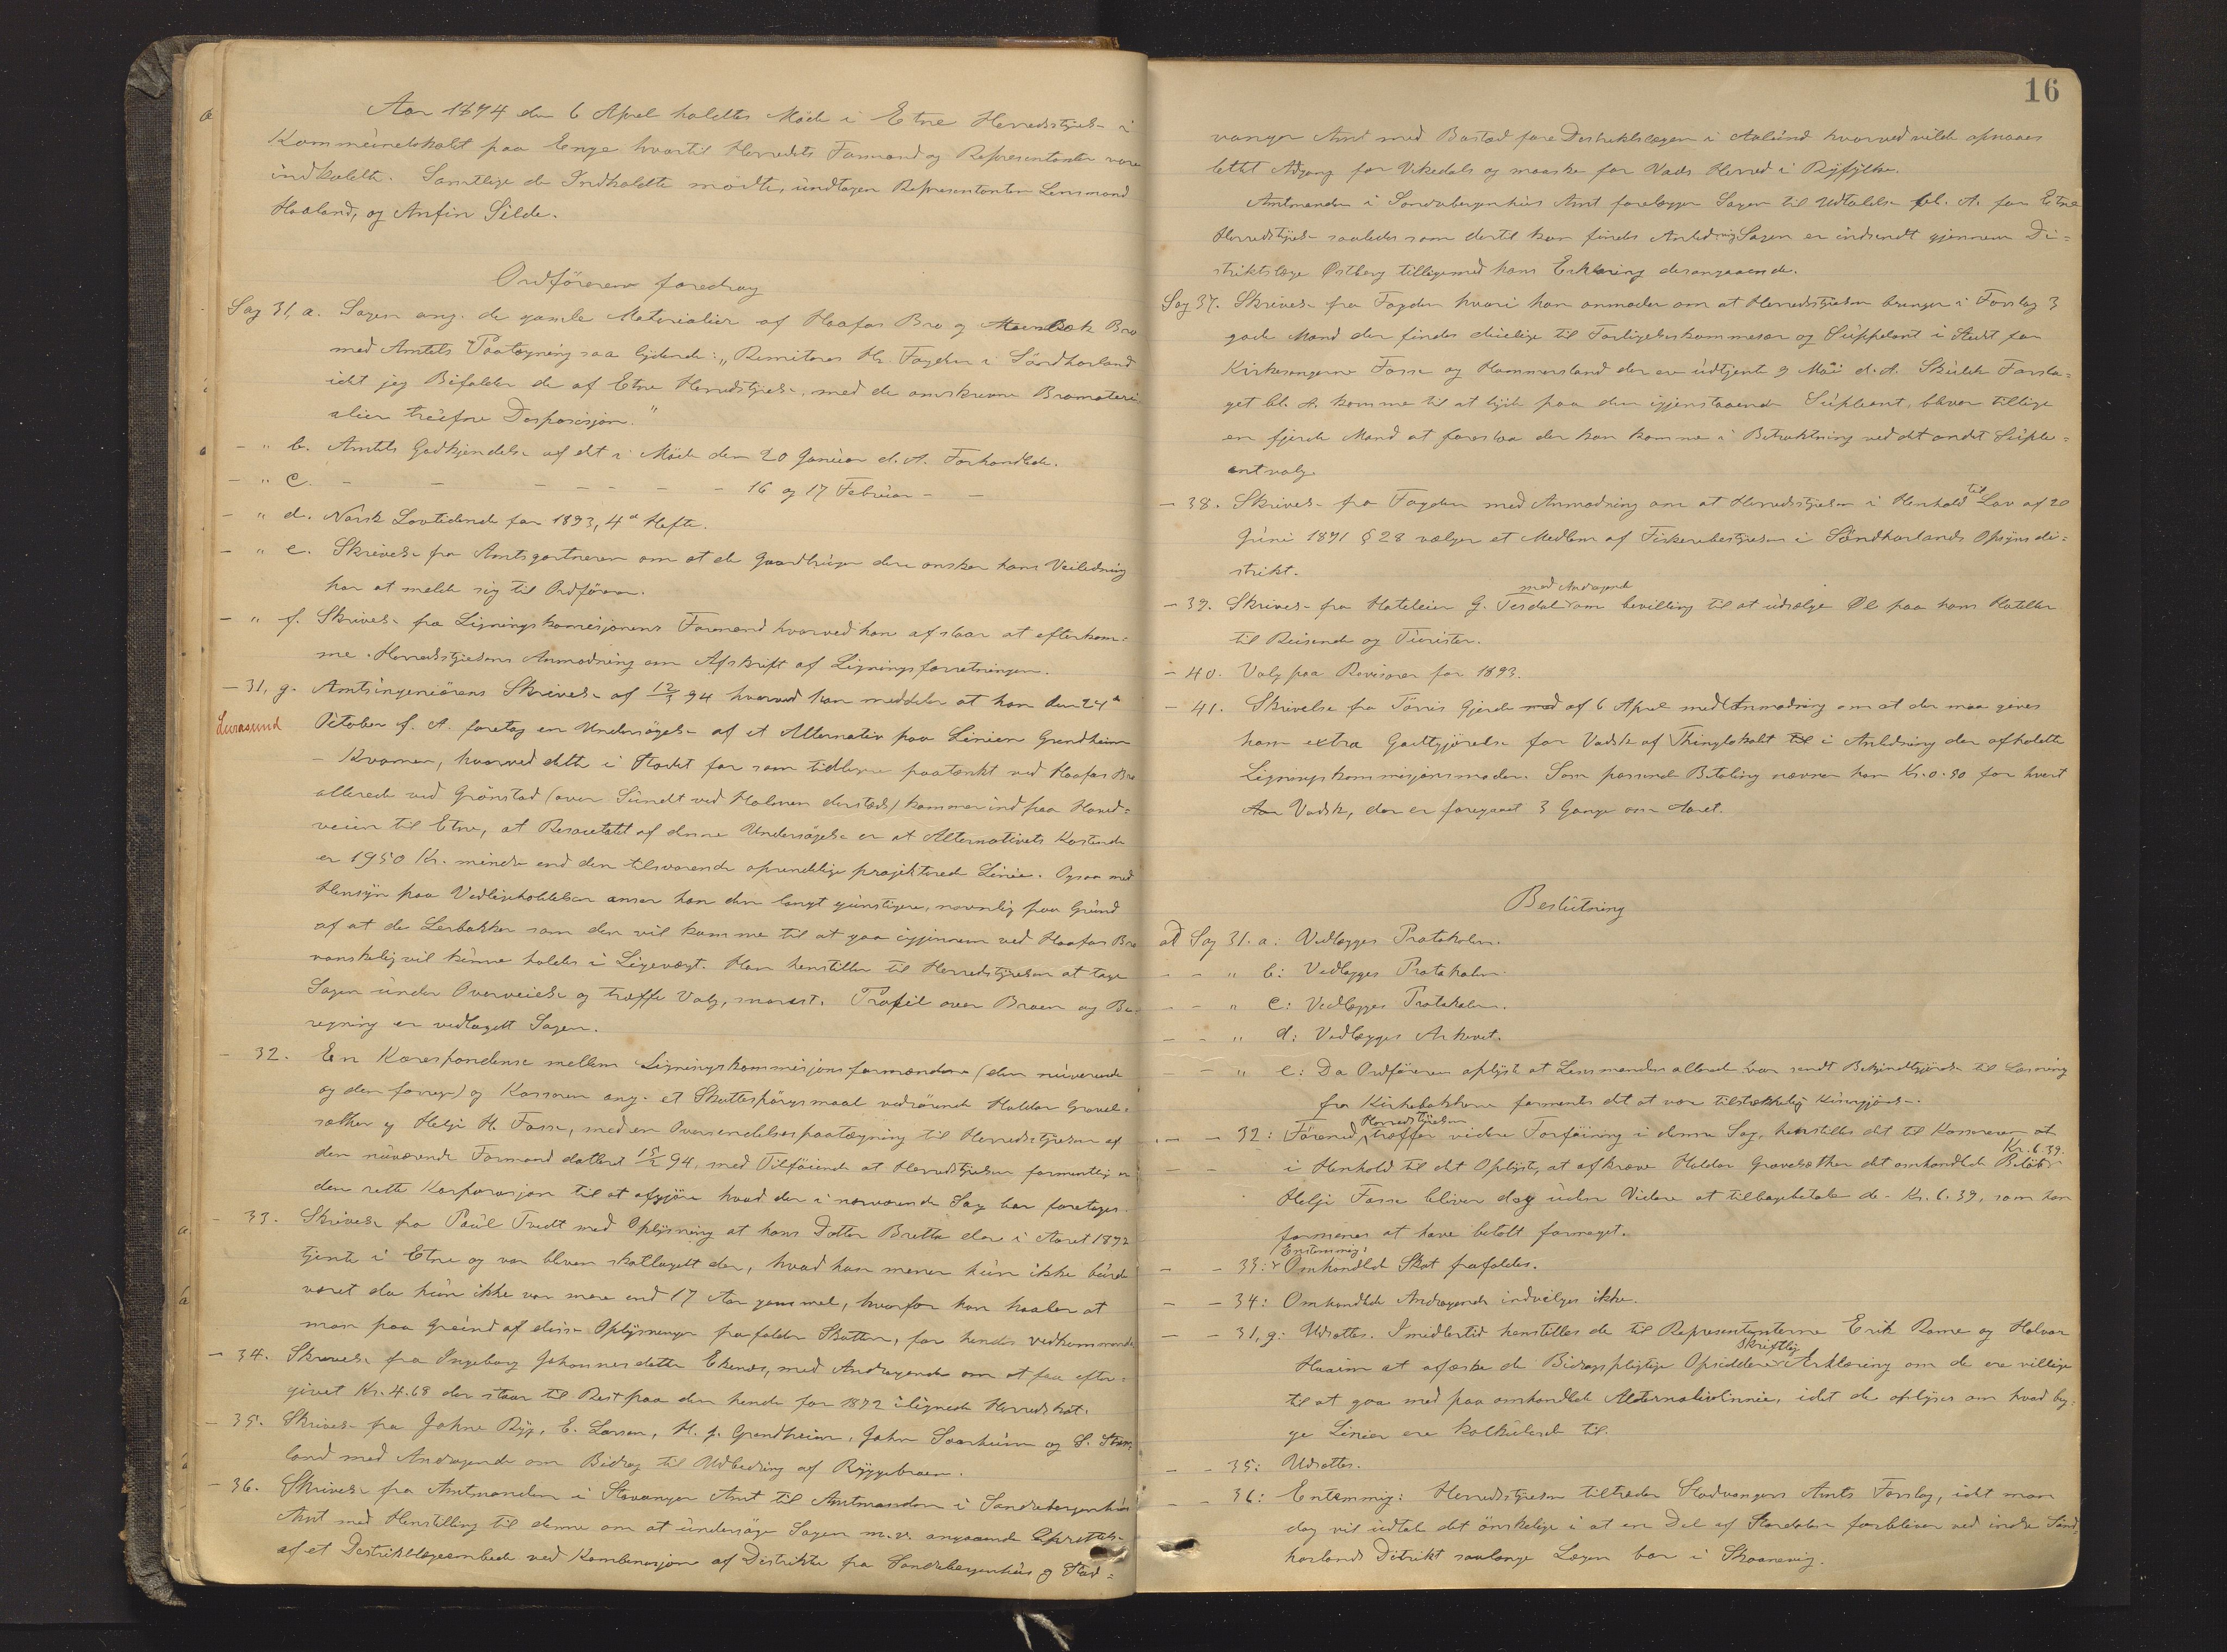 Aar 1894 den 6 April holdtes Möde i Etne Herredsstyrelse i
Kommunelokalet paa Enge hvortil Herredets Formænd og Repræsentanter vare
indkaldte. Samtlige de Indkaldte mödte, undtagen Repræsentanten Lensmand
Haaland, og Anfin Silde.
Ordförerens foredrag
Sag 31, a. Sagen ang. de gamle Materialier af Haafos Bro og Bro
med Amtets Paategning saa lydende: „Remitteres Hr. Fogden i Söndhorland
idet jeg Bifalder de af Etne Herredstyrelse, med de omskrevne Bromateri
alier trufne Desposisjon."
- " b. Amtets Godkjendelse af det i Möde den 20 Januar d. A. Forhandlede.
- " c. - - - - - - - - 16 og 17 Februar - -
- " d. Norsk Lovtidende for 1893, 4de Hefte.
- " e. Skrivelse fra Amtsgartneren om at de Gaardbruger der ønsker hans Veiledning
har at melde sig til Ordförer.
- " f. Skrivelse fra Ligningskomisjonens Formand hvorved han afslaar at efterkom=
me Herredsstyrelsens Anmodning om Afskrift af Ligningsforretningen.
- 31, g. Amtsingeniörens Skrivelse af 12/3 94 hvorved han meddeler at han den 24de
Lurasund
October f. A. foretog en Undersögelse af et Alternativ paa Linien Grindheim
- Kvamen, hvorved dette i Stedet for som tidligere paatænkt ved Haafos Bro
allerede ved Grönstad (over Sundet ved Holmen dersteds) kommer ind paa Hoved=
veien til Etne, at Resultatet af denne Undersögelse er at Alternativets Kostende
er 1950 Kr. mindre end den tilsvarende oprindelige projekterede Linie. Ogsaa med
Hensyn paa Vedligeholdelsen anser han den langt gunstigere, navnlig paa Grund
af at de Lerbakker som den vil komme til at gaa igjennem ved Haafos Bro
vanskelig vil kunne holdes i Ligevægt. Han henstiller til Herredstyrelsen at tage
Sagen under Overveielse og træffe Valg, snarest. Profil over Broen og Be-
regning er vedlagt Sagen.
- 32. En Korespondense mellem Ligningskommisjonsformændene (den nuværende
og den forrige) og Kassereren ang. et Skattespörgsmaal vedrörende Haldor Gravel-
sæther og Helje H. Fosse, med en Oversendelsespaategning til Herredsstyrelsen af
den nuværende Formand datteret 15/2 94, med Tilföiende at Herredstyrelsen formentlig er
den rette Korporasjon til at afgjöre hvad der i nærværende Sag bør foretages.
- 33. Skrivelse fra Paul Tvedt med Oplysning at hans Datter Bretta der i Aaret 1892
tjente i Etne og var bleven skatlagt der, hvad han mener hun ikke burde
været da hun ikke var mere end 17 Aar gammel, hvorfor han haaber at
man paa Grund af disse Oplysninger frafalder Skatten, for hendes vedkommende.
- 34. Skrivelse fra Ingeborg Johannesdatter Ekenes, med Andragende om at faa efter-
givet Kr. 4.68 der staar til Rest paa den hende for 1892 ilignede Herredskat.
- 35. Skrivelse fra Johne Ryg, E. Larsen, H. J. Grindheim, John Soarheim og S.
land med Andragende om Bidrag til Udbedring af Ryggebroen.
- 36. Skrivelse fra Amtmanden i Stavanger Amt til Amtmanden i Söndrebergenhus
Amt med Henstilling til denne om at undersöge Sagen m.v. angaaende Oprettelse
af et Destriktslægeembede ved Kombinasjon af Distrikter fra Söndrebergenhus og Stav=
16
vanger Amt med Bosted for Destriktslægen i Aalund hvorved vilde opnaaes
lettet Adgang for Vikedals og maaske for Vads Herred i Ryfylke.
Amtmanden i Söndrebergenhus Amt forelægger Sagen til Udtalelse bl. A. for Etne
Herredstyrelse saaledes som dertil kan findes Anledning Sagen er indsendt gjennem Di=
striktslæge Østberg tilligemed hans Erklæring desangaaende.
Sag 37. Skrivelse fra Fogden hvori han anmoder om at Herredstyrelsen bringer i Forslag 3
gode Mænd der findes duelige til Forligelseskommesær og Suppleant i Stedet for
Kirkesangerne Fosse og Hammersland der ere udtjente 9 Mai d. A. Skulde Forsla=
get bl. A. komme til at lyde paa den igjenstaaende Supleant, bliver tillige
en fjerde Mand at foreslaa der kan komme i Betraktning ved det andet Suple=
antvalg.
- 38. Skrivelse fra Fogden med Anmodning om at Herredsstyrelsen i Henhold til Lov af 20
Juni 1891 § 28 vælger et Medlem af Fiskeribestyrelsen i Söndhorlands Opsynsdi=
strikt.
- 39. Skrivelse fra Hoteleier G. Tesdal med Andragende om bevilling til at udsælge Øl paa hans Hoteller
til Reisende og Turister.
- 40. Valg paa Revisorer for 1893.
- 41. Skrivelse fra Törris Gjerde af 6 April med Anmodning om at der maa gives
ham extra Godtgjörelse for Vadsk af Thinglokalet i Anledning der afholdte
Ligningskommisjonsmöder. Som passende Betaling nævner han Kr. 0.80 for hvert
Vadsk, der er foregaaet 3 Gange om Aaret.
Beslutning
ad Sag 31. a: Vedlægges Protokolen.
- - " b: Vedlægges Protokolen.
- - " c: Vedlægges Protokolen.
- - " d: Vedlægges Arkevet.
- - " e: Da Ordföreren oplyste at Lensmanden allerede var sendt Bekjendtgjörelse til Læsning
fra Kirkebakkene formentes det at være tilstrækkelig Kungjörelse.
- - 32: Förend Herredstyrelsen træffer videre Forföining i denne Sag, henstilles det til Kasereren at
i Henhold til det Oplyste, at afkræve Haldor Gravesæther det omhandlede Belöb Kr. 6.39.
Helje Fosse bliver dog uden Videre at tilbagebetale de - Kr. 6.39, som han
formenes at have betalt formeget.
- - 33: Enstemmig: Omhandlede Skat frafaldes.
- - 34: Omhandlede Andragende indvilges ikke.
- - 31, g: Udsættes. Imidlertid henstilles de til Representanterne Erik Rame og Halvor
Haaim at afæske de Bidragspligtige Opsiddere Skriftlig Erklæring om de ere villige
til at gaa med paa omhandlede Alternativlinie, idet de oplyser om hvad beg-
ge Linier ere kalkuleret til.
- - 35: Udsættes.
- - 36: Enstemmig: Herredstyrelsen tiltræder Stavangers Amts Forslag, idet man
dog vil udtale det önskelige i at en Del af Stordalen forbliver ved indre Sönd-
horlands Ditrikt saalænge Lægen bor i Skaanevig.